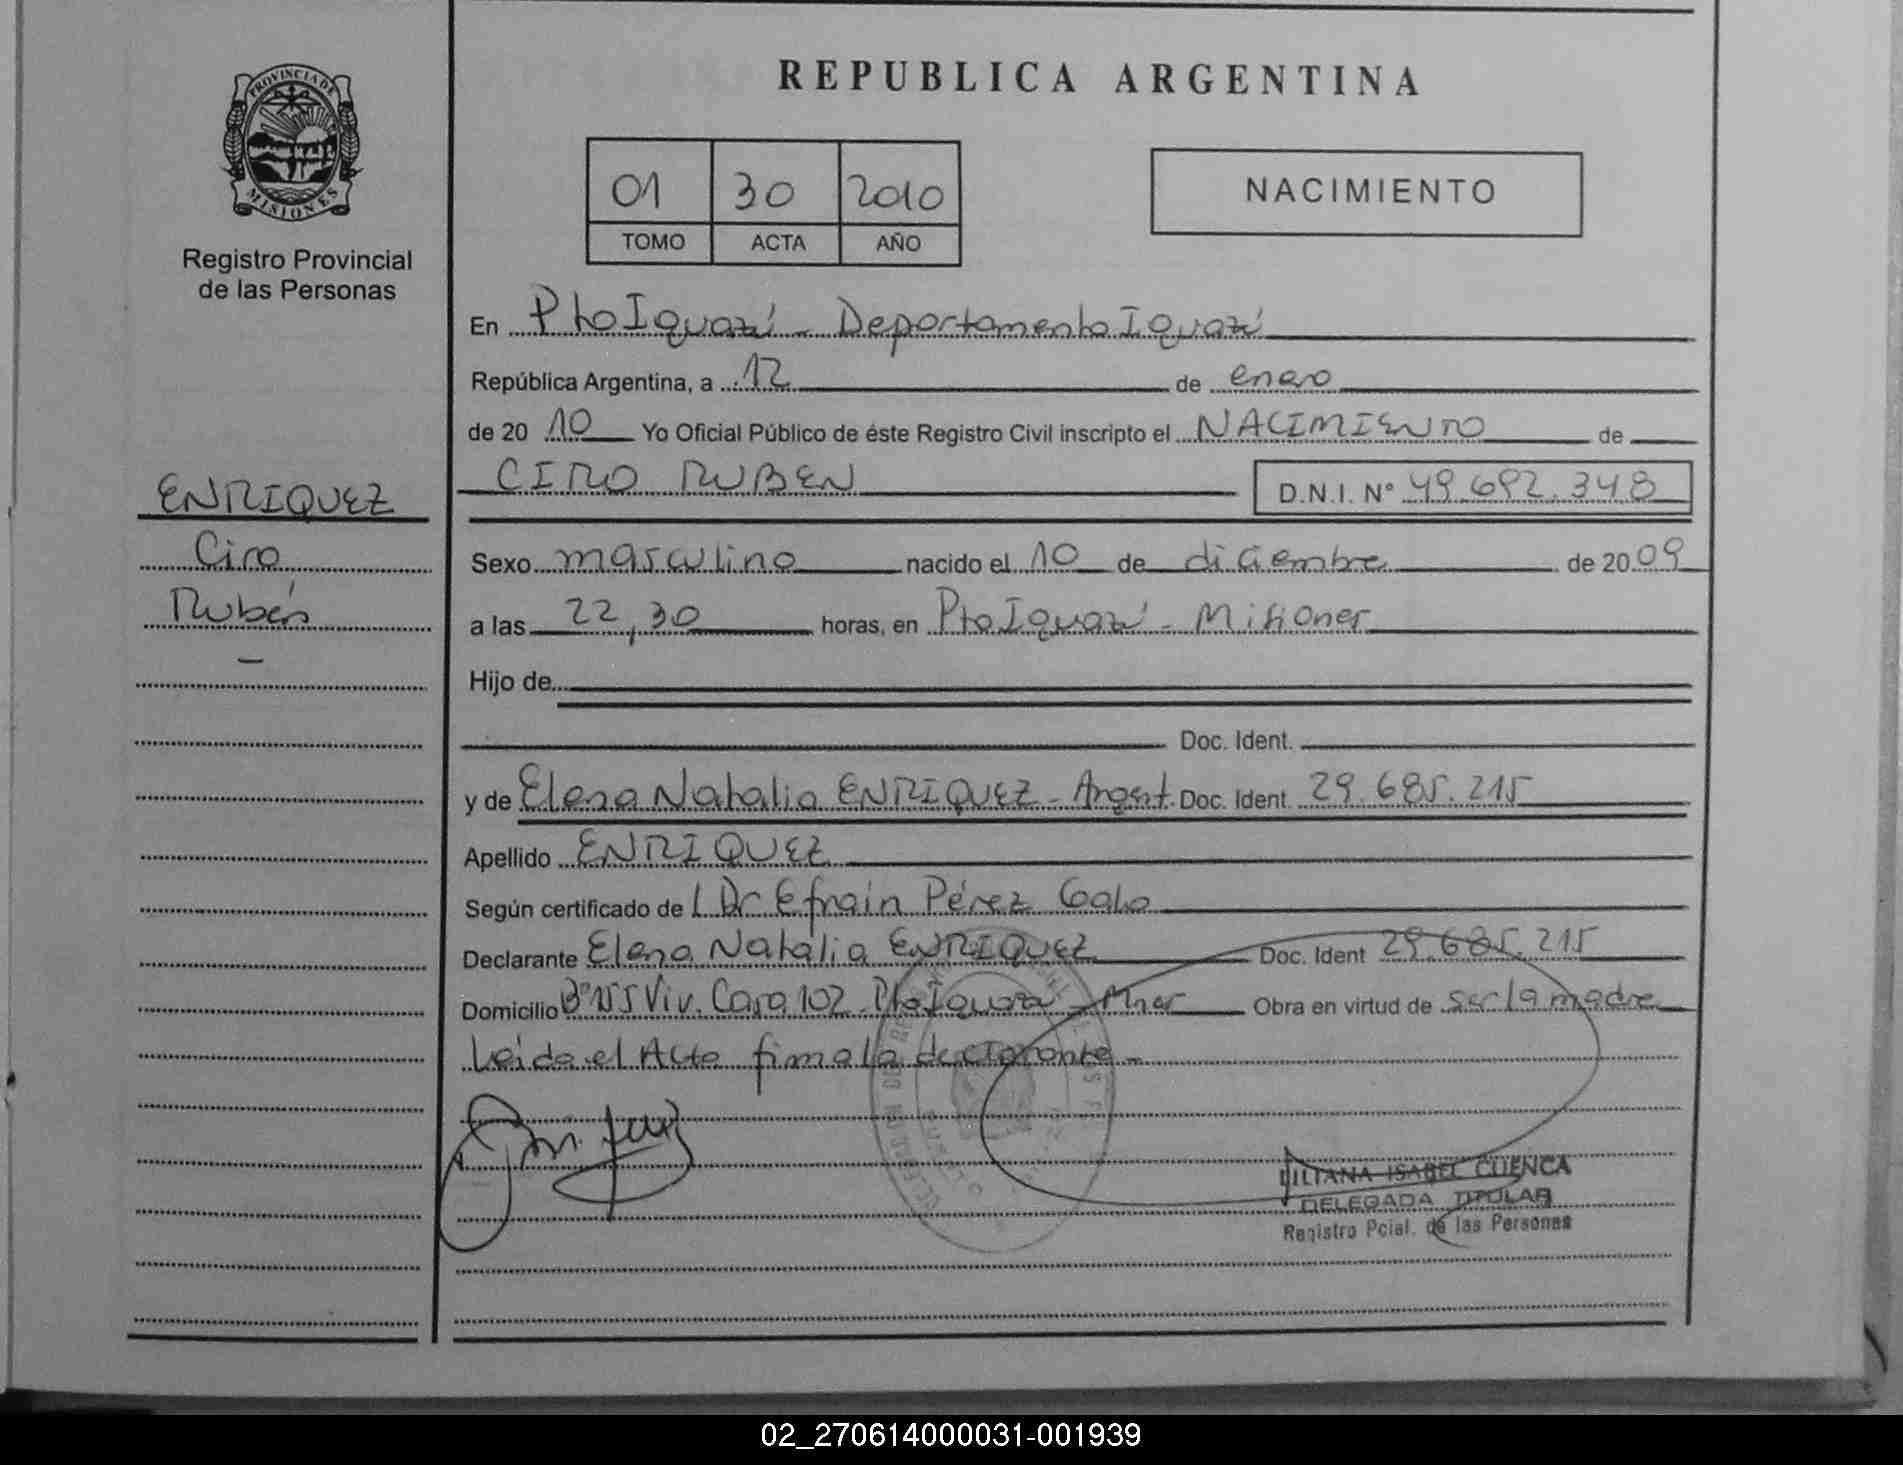 PROVINCIA DE
MISIONES
Registro Provincial
de las Personas
ENRIQUEZ
Ciro
Rubén
REPUBLICA ARGENTINA
01 30 2010
TOMO ACTA AÑO
NACIMIENTO
En Pto Iguazú - Departamento Iguazú
República Argentina, a 12 de enero
de 20 10 Yo Oficial Público de éste Registro Civil inscripto el NACIMIENTO de
CIRO RUBEN D.N.I. N° 49.692.348
Sexo masculino nacido el 10 de diciembre de 20 09
a las 22,30 horas, en Pto Iguazú - Misiones
Hijo de
Doc. Ident.
y de Elena Natalia ENRIQUEZ - Argent. Doc. Ident. 29.685.215
Apellido ENRIQUEZ
Según certificado de l Dr Efraín Pérez Galo
Declarante Elena Natalia ENRIQUEZ Doc. Ident 29.685.215
Domicilio Viv. Casa 102 - Pto Iguazú - Mnes Obra en virtud de ser la madre
Leída el Acta firma la declarante -
LILIANA ISABEL CUENCA
DELEGADA TITULAR
Registro Pcial. de las Personas
02_270614000031-001939